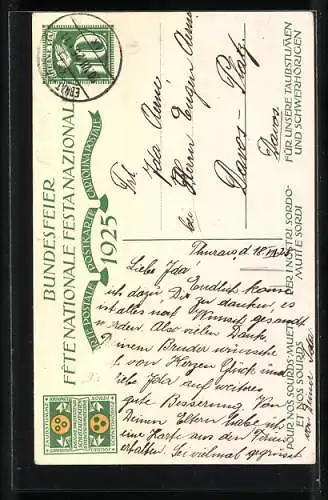 BUNDESFEIER
FÊTE NATIONALE FESTA NAZIONALE
CARTE POSTALE POSTKARTE CARTOLINA POSTALE
1925
10
Frl.
Ida Aenis
bei Herrn Eugen Aenis
Davos-Platz
Davos
FÜR UNSERE TAUBSTUMMEN
UND SCHWERHÖRIGEN
PER I NOSTRI SORDO-
MUTI E SORDI
POUR NOS SOURDS-MUETS
ET NOS SOURDS
d. 18.
Liebe Ida
Endlich komme
ich dazu, Dir zu danken, es
ist alles nach Wunsch gesandt
worden. Also vielen Dank.
Deinem Bruder wünsche
ich von Herzen Glück und
liebe Ida auf weiteres
gute Besserung. Von
Deinen Eltern habe ich
eine Karte aus den Ferien
erhalten. Sei vielmal gegrüsst
von Deiner Ida